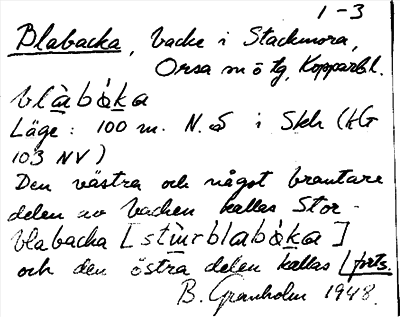 1-3
Blabacka, backe i Stackmora,
Orsa sn ö tg, Kopparbl.
blàbáka
Läge: 100 m. N. S i Skh (kG
103 NV)
Den västra och något brantare
delen av backen kallas Stor-
blabacka [stùrblabáka]
och den östra delen kallas | forts.
B. Granholm 1948.